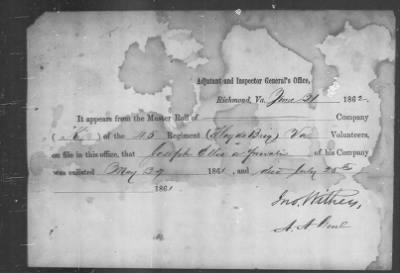 Adjutant and Inspector General's Office,
Richmond, Va. June 21 1862.
It appears from the Muster Roll of Company
( "K" ) of the 45 Regiment Va Volunteers,
on file in this office, that Joseph a private of his Company
was enlisted May 29 1861, and died July 25th
1861.
Jno. Withers,
A. A. Genl